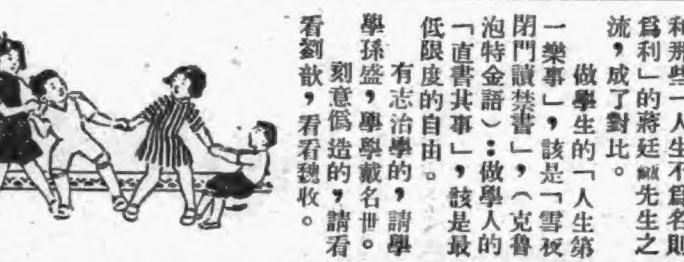 和那些「人生不爲名則
爲利」的蔣廷黻先生之
流，成了對比。
做學生的「人生第
一樂事」，該是「雪夜
閉門讀禁書」，（克魯
泡特金語）：做學人的
「直書其事」，該是最
低限度的自由。
有志治學的，請學
學孫盛，學學戴名世。
刻意僞造的，請看
看劉歆，看看魏收。